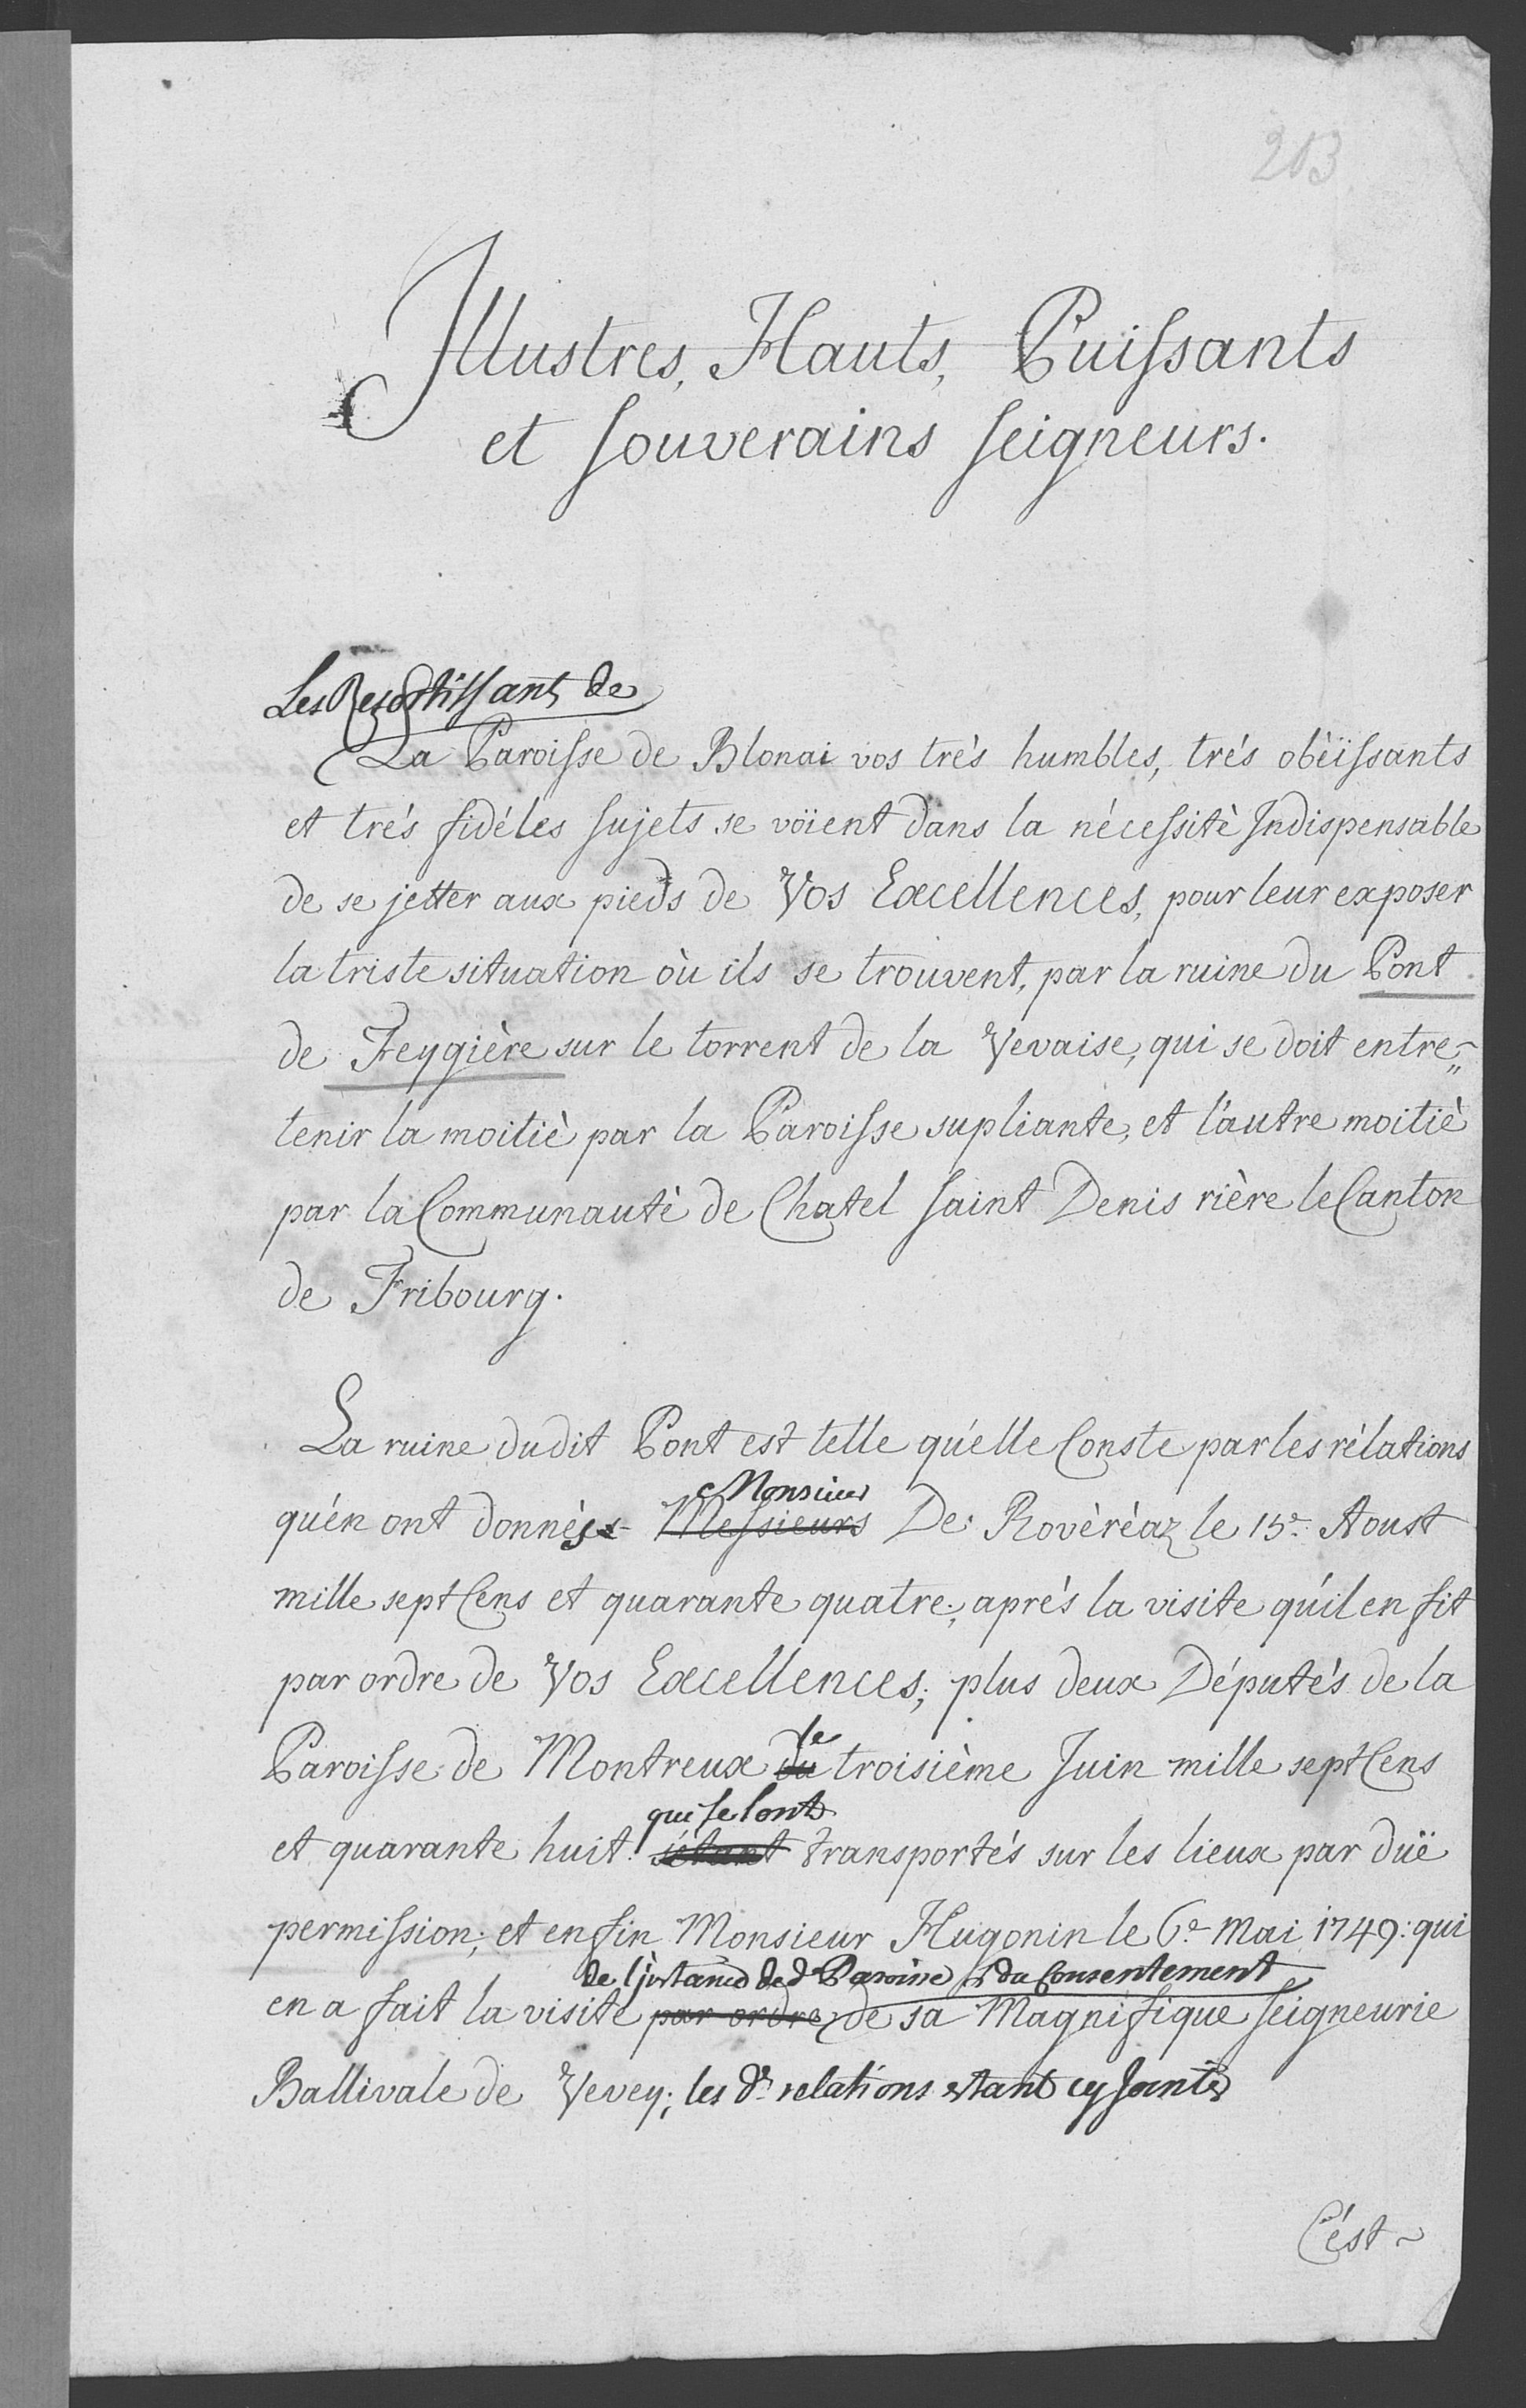 203
Illustres, Hauts, Puissants
et souverains seigneurs.
Les Resortissant de
La Paroisse de Blonai vos trés humbles, trés obèïssants
et trés fidéles sujets se voïent dans la nécessitè Indispensable
de se jetter aux pieds de Vos Excellences, pour leur exposer
la triste situation où ils se trouvent, par la ruine du Pont
de Feygière sur le torrent de la Vevaise, qui se doit entre-
tenir la moitiè par la Paroisse supliante, et l'autre moitiè
par la Communautè de Chatel saint Denis rière le Canton
de Fribourg.
La ruine dudit Pont est telle qu'elle Conste par les rélations
Monsieur
qu'en ont donnèes Messieurs De Rovèrèaz le 15e Aoust
mille sept Cens et quarante quatre, aprés la visite qu'il en fit
par ordre de Vos Excellences; plus deux Députés de la
le
Paroisse de Montreux du troisième Juin mille sept Cens
qui se sont
et quarante huit s'étant transportés sur les lieux par düe
permission; et enfin Monsieur Hugonin le 6e Mai 1749: qui
de l'jnstance de de Paroisse & du Consentement
en a fait la visite par ordre de sa Magnifique seigneurie
Ballivale de Vevey; les des relations estant cy Jointes
C'ést ~